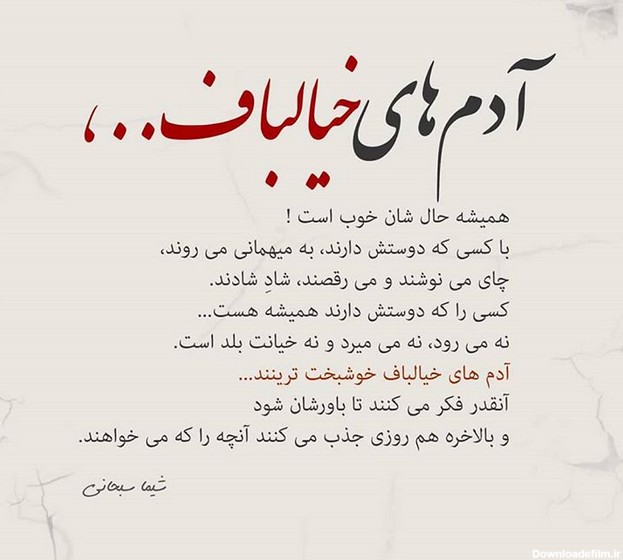 آدم های خیالباف..،
همیشه حال شان خوب است !
با کسی که دوستش دارند، به میهمانی می روند،
چای می نوشند و می رقصند، شادِ شادند.
کسی را که دوستش دارند همیشه هست...
نه می رود، نه می میرد و نه خیانت بلد است.
آدم های خیالباف خوشبخت ترینند...
آنقدر فکر می کنند تا باورشان شود
و بالاخره هم روزی جذب می کنند آنچه را که می خواهند.
شیما سبحانی
Downloadefilm.ir